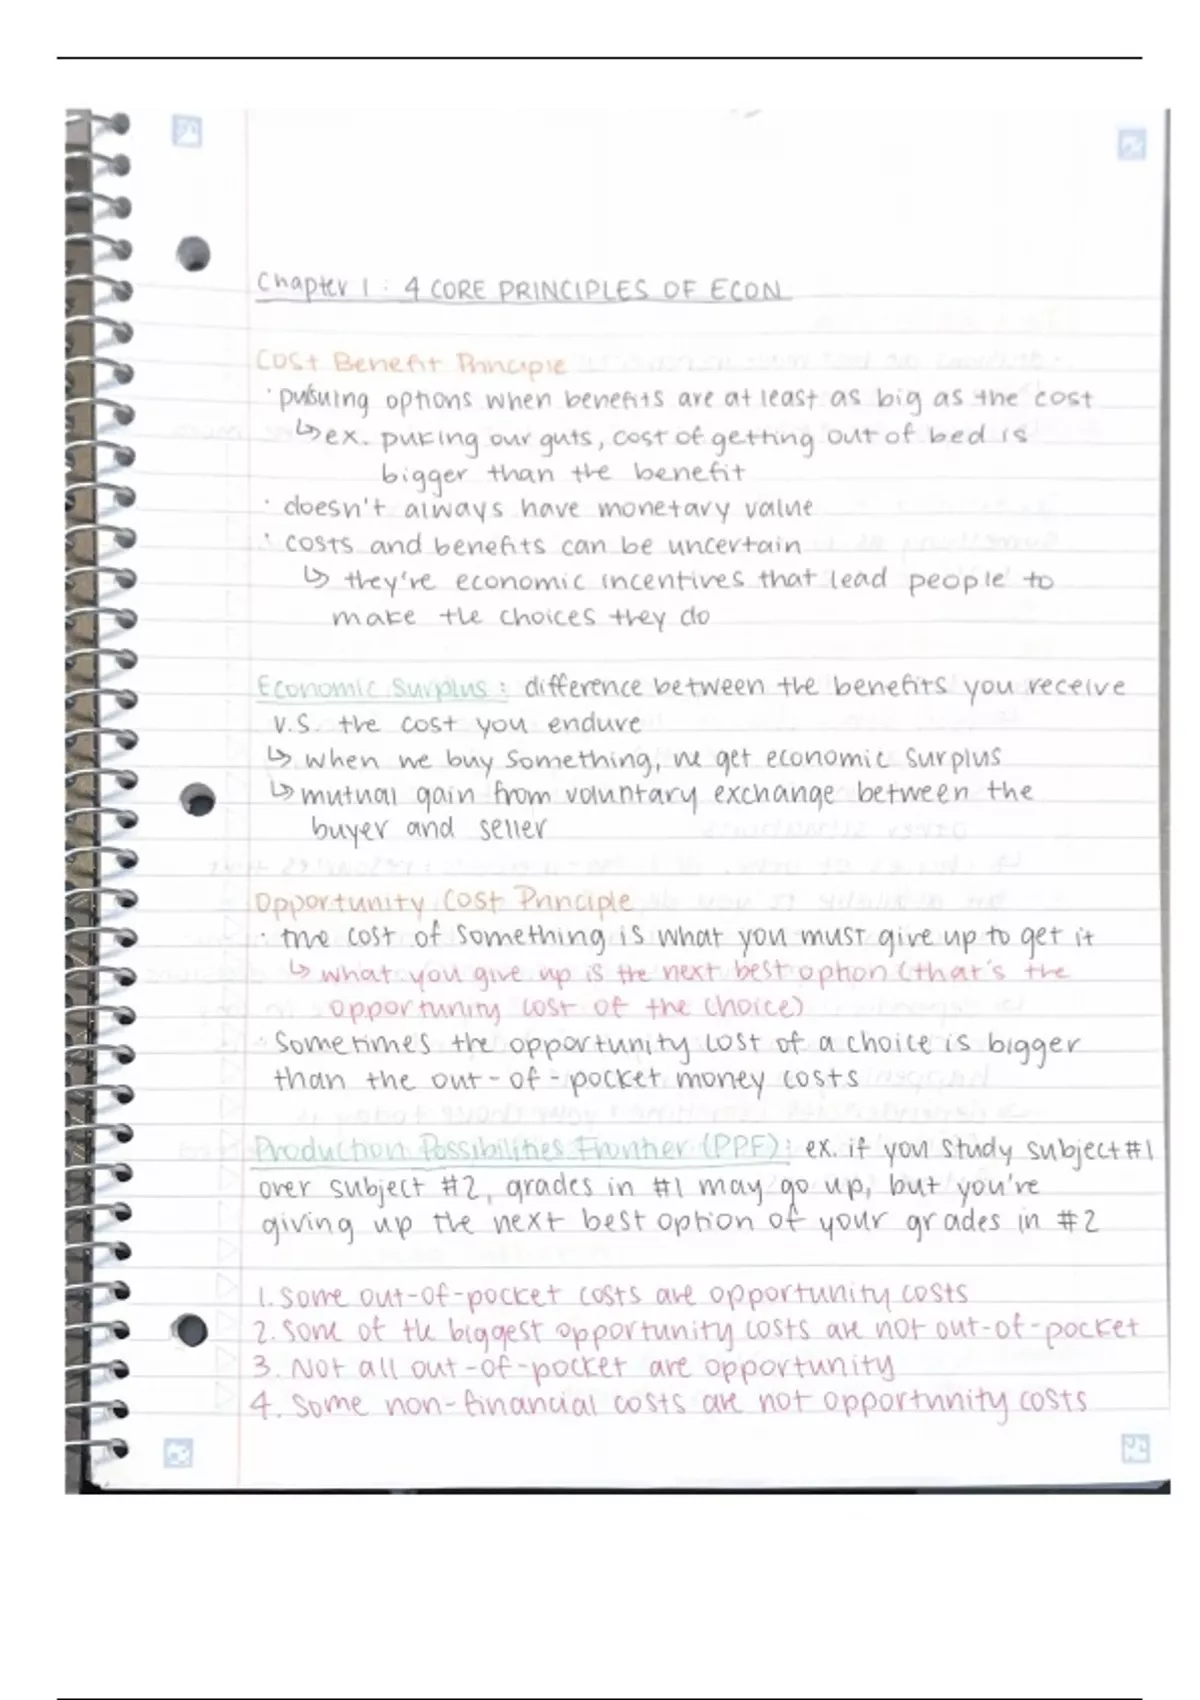 Chapter 1 : 4 CORE PRINCIPLES OF ECON
Cost Benefit Principle
· pursuing options when benefits are at least as big as the cost
↳ ex. puking our guts, cost of getting out of bed is
bigger than the benefit
· doesn't always have monetary value
· costs and benefits can be uncertain
↳ they're economic incentives that lead people to
make the choices they do
Economic Surplus : difference between the benefits you receive
v.s. the cost you endure
↳ when we buy something, we get economic surplus
↳ mutual gain from voluntary exchange between the
buyer and seller
Opportunity Cost Principle
· the cost of something is what you must give up to get it
↳ what you give up is the next best option (that's the
opportunity cost of the choice)
· Sometimes the opportunity cost of a choice is bigger
than the out-of-pocket money costs
Production Possibilities Frontier (PPF): ex. if you study subject #1
over subject #2, grades in #1 may go up, but you're
giving up the next best option of your grades in #2
1. Some out-of-pocket costs are opportunity costs
2. Some of the biggest opportunity costs are not out-of-pocket
3. Not all out-of-pocket are opportunity
4. Some non-financial costs are not opportunity costs